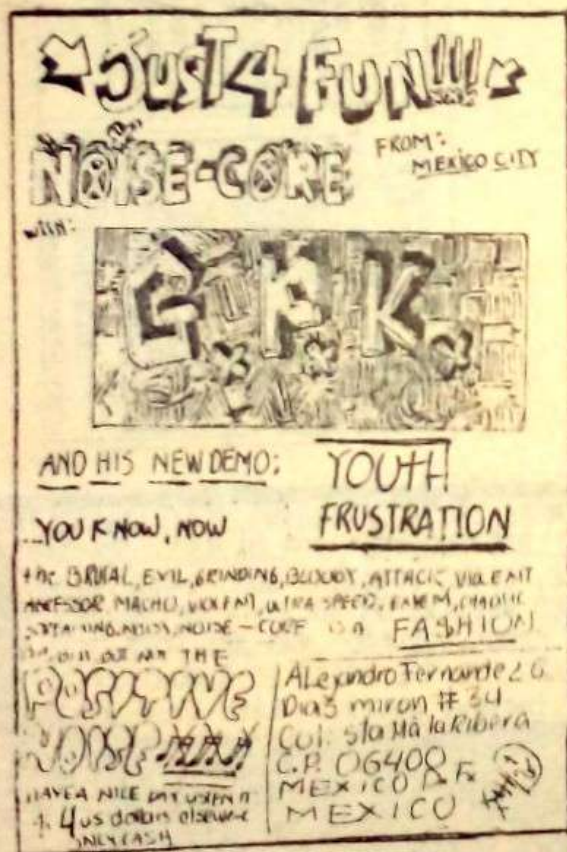 JUST 4 FUN!!!
NOISE-CORE
FROM:
MEXICO CITY
WITH:
AND HIS NEW DEMO:
YOUTH
FRUSTRATION
...YOU KNOW, NOW
the BRUTAL, EVIL, GRINDING, BLOODY, ATTACK, VIOLENT
MACHO, VIOLENT, ULTRA SPEED, CHAOTIC
NOISE-CORE IS A FASHION
THE
POSITIVE
NOISE
HAVE A NICE DAY
4 us dollars elsewere
ONLY CASH
Alejandro Fernandez G.
Diaz miron # 34
Col. sta Mà la Ribera
C.P. 06400
MEXICO D.F.
MEXICO